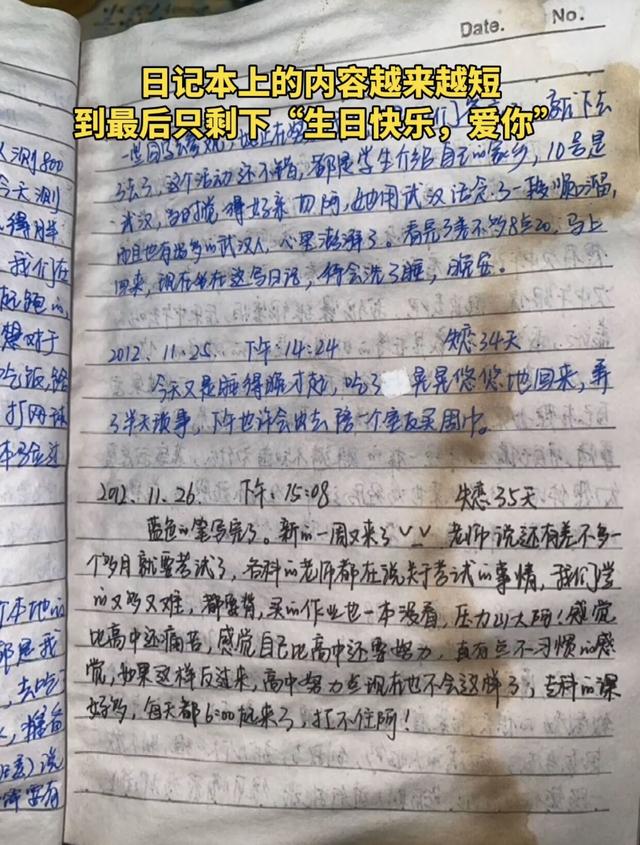 Date.
No.
日记本上的内容越来越短
到最后只剩下“生日快乐，爱你”
去了，这个活动还不错，都是学生介绍自己的家乡，10号是
武汉，当时觉得好亲切阿，她用武汉话念了一段顺口溜，
而且也有好多的武汉人，心里澎湃了。看完了差不多8点20，马上
回来，现在坐在这写日记，待会洗了睡，晚安。
2012.11.25. 下午:14:24 失恋34天
今天又是睡得晚才起，吃了 晃晃悠悠地回来，弄
了半天琐事，下午也许会出去陪一个室友买围巾。
2012.11.26. 下午:15:08 失恋35天
蓝色的笔写完了。新的一周又来了 老师说还有差不多一
个多月就要考试了，各科的老师都在说关于考试的事情，我们学
的又多又难，都要背，买的作业也一本没看，压力山大啊！感觉
比高中还痛苦，感觉自己比高中还要努力，真有点不习惯的感
觉，如果这样反过来，高中努力点现在也不会这样了，专科的课
好多，每天都6:00起来了，扛不住阿！
人测800
今天测
得胖
我们在
起跑的
想对于
吃饭，给
打网球
个本地的
都是我
，去吃
，准备
说